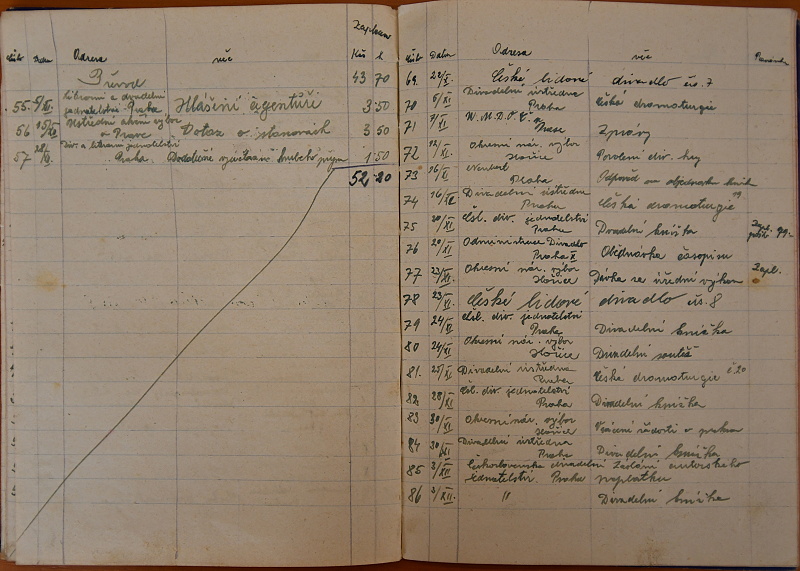 Zaplaceno
Adresa věc Kčs h
Převod 43 70
55. 9/XI. Literární a divadelní
jednatelství Praha Hlášení agentuře 3 50
56 15/XI Ústřední akční výbor
v Praze Dotaz o stanovách 3 50
57 28/XI Div. a literární jednatelství
Praha Dodatečné 1 50
52 20
Datum Adresa věc
69. 22/X. České lidové divadlo čís. 7
70 5/XI. Divadelní ústředna
Praha České dramaturgie
71 7/XI W.M.D.O.Č.
Praze Zprávy
72 12/XI. Okresní nár. výbor
Hořice Povolení div. hry
73 16/XI Neubert
Praha Odpověď na objednávku knih
74 16/XI Divadelní ústředna
Praha Česká dramaturgie 19
75 20/XI Čsl. div. jednatelství
Praha Divadelní knížka Zapl.
76 20/XI Administrace Divadlo
Praha II Objednávka časopisu
77 23/XI. Okresní nár. výbor
Hořice Dávka za úřední výkon Zapl.
78 23/XI České lidové divadlo čís. 8
79 24/XI Čsl. div. jednatelství
Praha Divadelní knížka
80 24/XI Okresní nár. výbor
Hořice Divadelní soutěž
81. 25/XI Divadelní ústředna
Praha České dramaturgie č. 20
82 28/XI Čsl. div. jednatelství
Praha Divadelní knížka
83 30/XI Okresní nár. výbor
Hořice Vrácení žádosti
84 30/XI Divadelní ústředna
Praha Divadelní knížka
85 3/XII Československé divadelní Zaslání autorského
jednatelství. Praha poplatku
86 3/XII. " Divadelní knížka